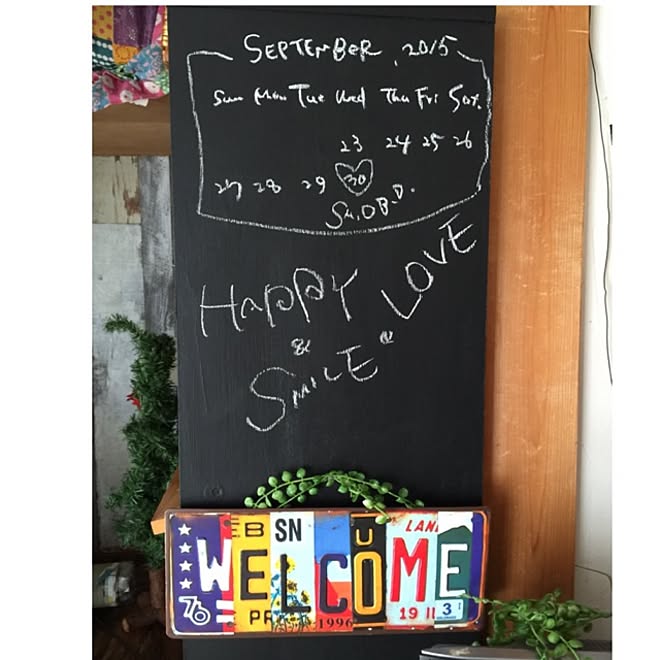 SEPTEMBER, 2015
Sun Mon Tue Wed Thu Fri Sat.
23 24 25 26
27 28 29 30
HAPPY
&
SMILE & LOVE
EB SN U LAN
WELCOME
76 PR 1996 19 11 3